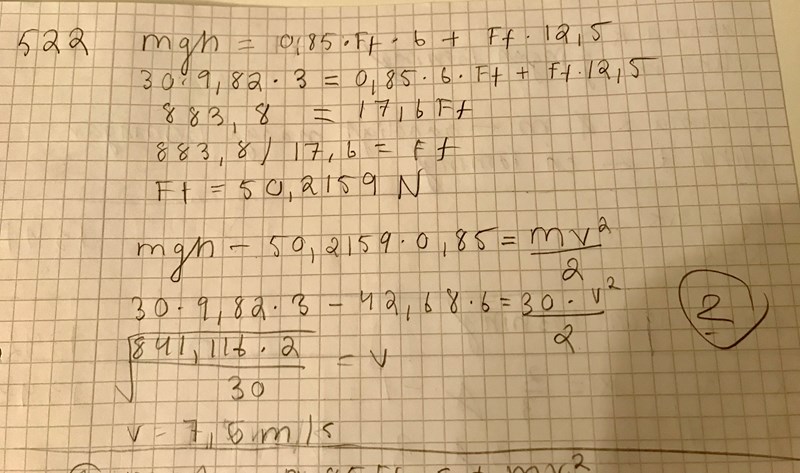 522 mgh = 0,85·Ff·6 + Ff·12,5
30·9,82·3 = 0,85·6·Ff + Ff·12,5
883,8 = 17,6Ff
883,8/17,6 = Ff
Ff = 50,2159 N
mgh - 50,2159·0,85 = mv²/2
30·9,82·3 - 42,68·6 = 30·v²/2
√841,116·2/30 = v
2
v = 7,5 m/s